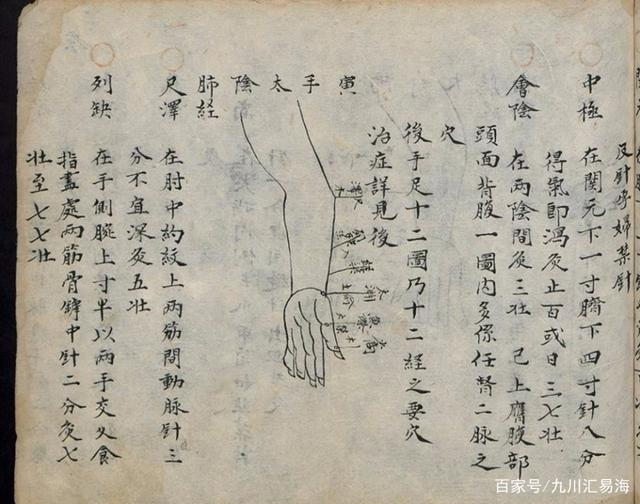 反針孕婦禁針
中極　在關元下一寸臍下四寸針八分
得氣即瀉灸止百或日三七壯
會陰　在兩陰間灸三壯　已上膺腹部
頭面背腹一圖內多係任督二脉之
穴
後手足十二圖乃十二経之要穴
治症詳見後
寅手太陰
肺経
尺澤
列缺
太淵
魚際
尺澤　在肘中約紋上兩筋間動脉針三
分不宜深灸五壯
列缺　在手側腕上寸半以兩手交叉食
指盡處兩筋骨罅中針二分灸七
壯至七七壯
百家号/九川汇易海